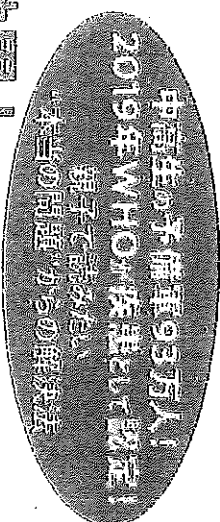 中高生の予備軍93万人！
2019年WHOが疾患として認定！
親子で読みたい
“本当の問題”からの解決法